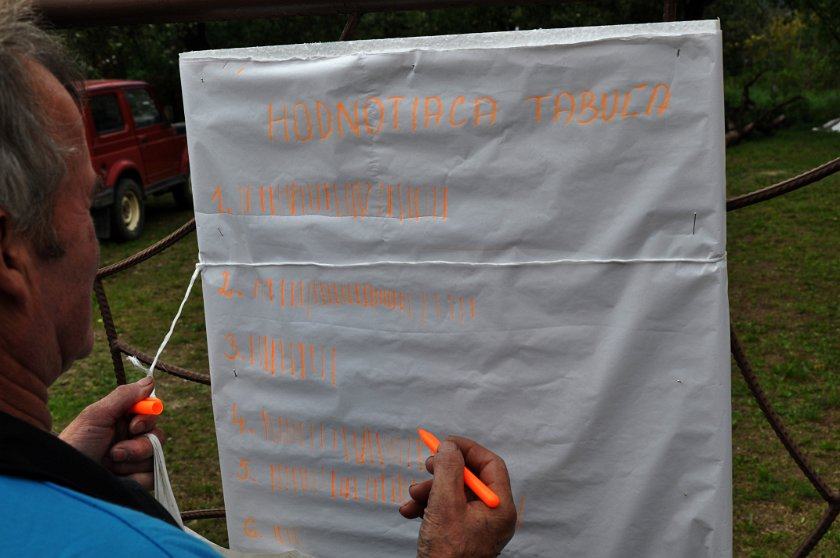 HODNOTIACA TABUĽA
1.
2.
3.
4.
5.
6.